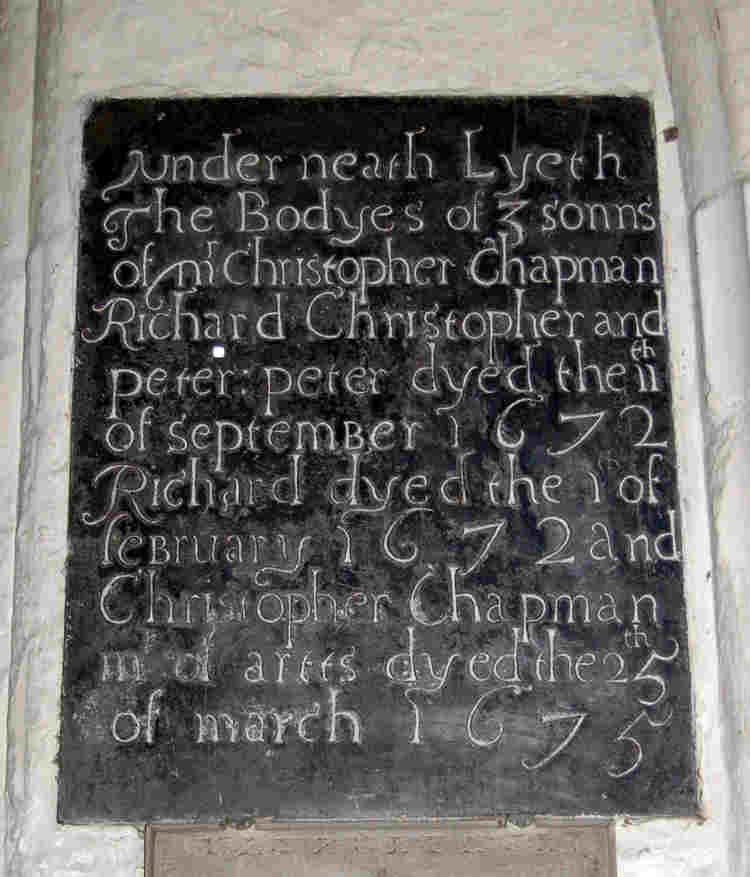 under neath Lyeth
The Bodyes of 3 sonns
of mr Christopher Chapman
Richard Christopher and
peter: peter dyed the 11th
of september 1672
Richard dyed the 1st of
feBruary 1672 and
Christopher Chapman
mr of artts dyed the 25th
of march 1675